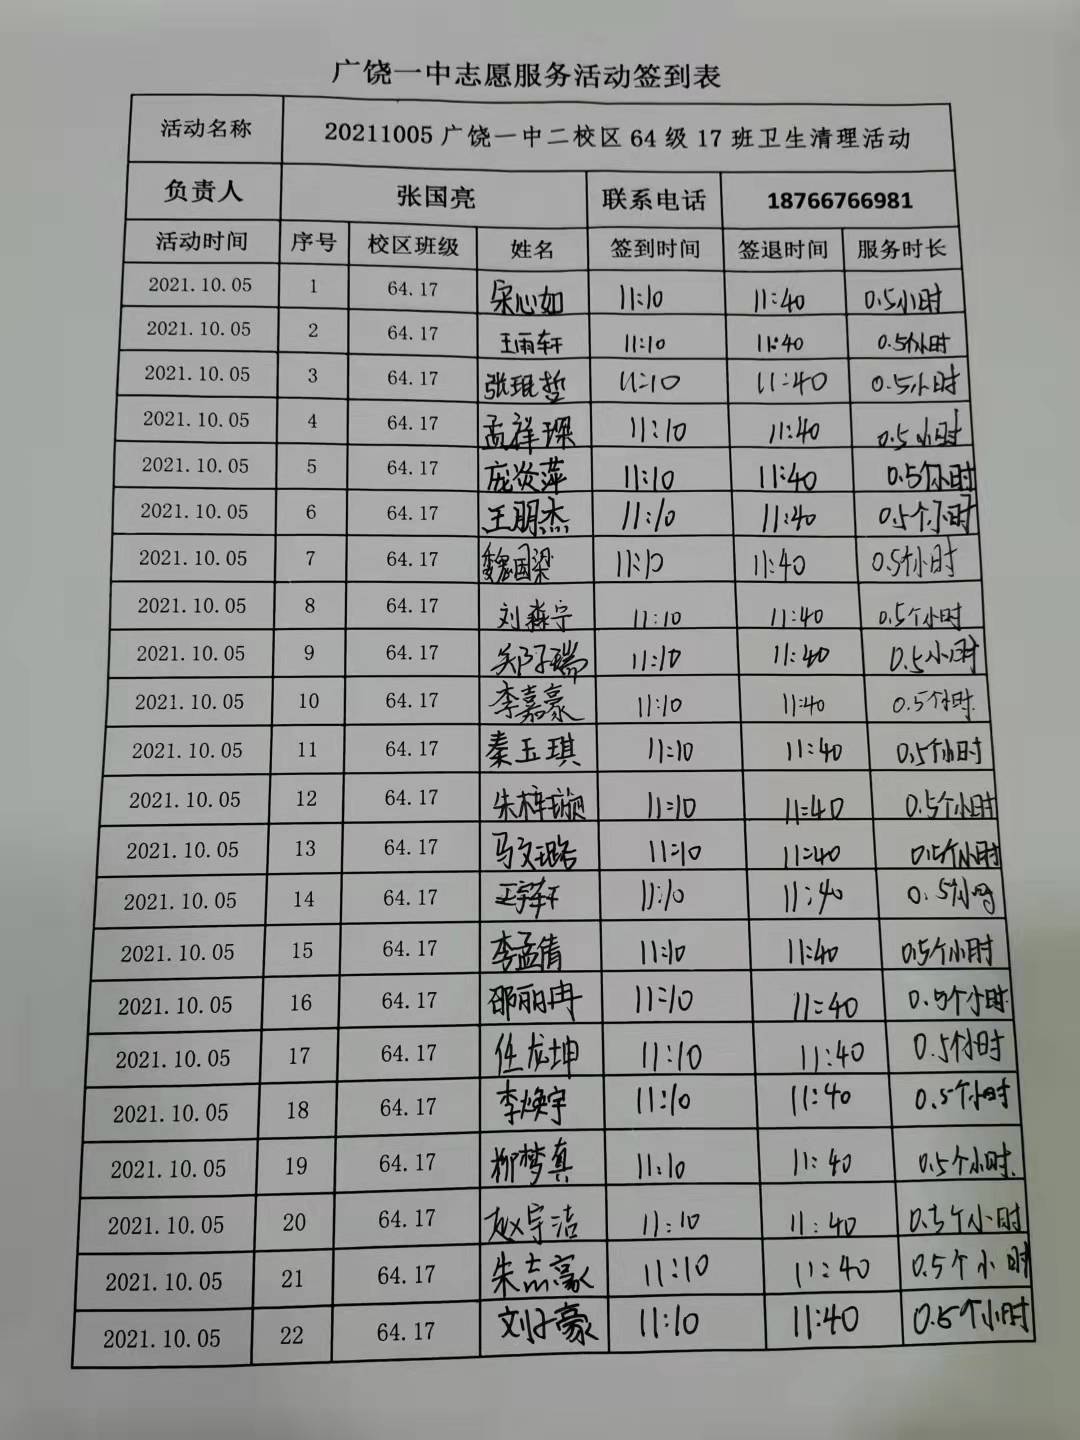 广饶一中志愿服务活动签到表
活动名称 20211005广饶一中二校区64级17班卫生清理活动
负责人 张国亮 联系电话 18766766981
活动时间 序号 校区班级 姓名 签到时间 签退时间 服务时长
2021.10.05 1 64.17 宋心如 11:10 11:40 0.5小时
2021.10.05 2 64.17 王雨轩 11:10 11:40 0.5个小时
2021.10.05 3 64.17 张琨哲 11:10 11:40 0.5小时
2021.10.05 4 64.17 孟祥琛 11:10 11:40 0.5小时
2021.10.05 5 64.17 庞炎萍 11:10 11:40 0.5个小时
2021.10.05 6 64.17 王朋杰 11:10 11:40 0.5个小时
2021.10.05 7 64.17 魏国梁 11:10 11:40 0.5个小时
2021.10.05 8 64.17 刘森宁 11:10 11:40 0.5个小时
2021.10.05 9 64.17 郑子瑞 11:10 11:40 0.5小时
2021.10.05 10 64.17 李嘉豪 11:10 11:40 0.5个小时
2021.10.05 11 64.17 秦玉琪 11:10 11:40 0.5个小时
2021.10.05 12 64.17 朱梓璇 11:10 11:40 0.5个小时
2021.10.05 13 64.17 马文璐 11:10 11:40 0.5个小时
2021.10.05 14 64.17 王宇轩 11:10 11:40 0.5个小时
2021.10.05 15 64.17 李孟倩 11:10 11:40 0.5个小时
2021.10.05 16 64.17 邵丽冉 11:10 11:40 0.5个小时
2021.10.05 17 64.17 任龙坤 11:10 11:40 0.5个小时
2021.10.05 18 64.17 李焕宇 11:10 11:40 0.5个小时
2021.10.05 19 64.17 柳梦真 11:10 11:40 0.5个小时.
2021.10.05 20 64.17 赵宇洁 11:10 11:40 0.5个小时
2021.10.05 21 64.17 朱志豪 11:10 11:40 0.5个小时
2021.10.05 22 64.17 刘子豪 11:10 11:40 0.5个小时